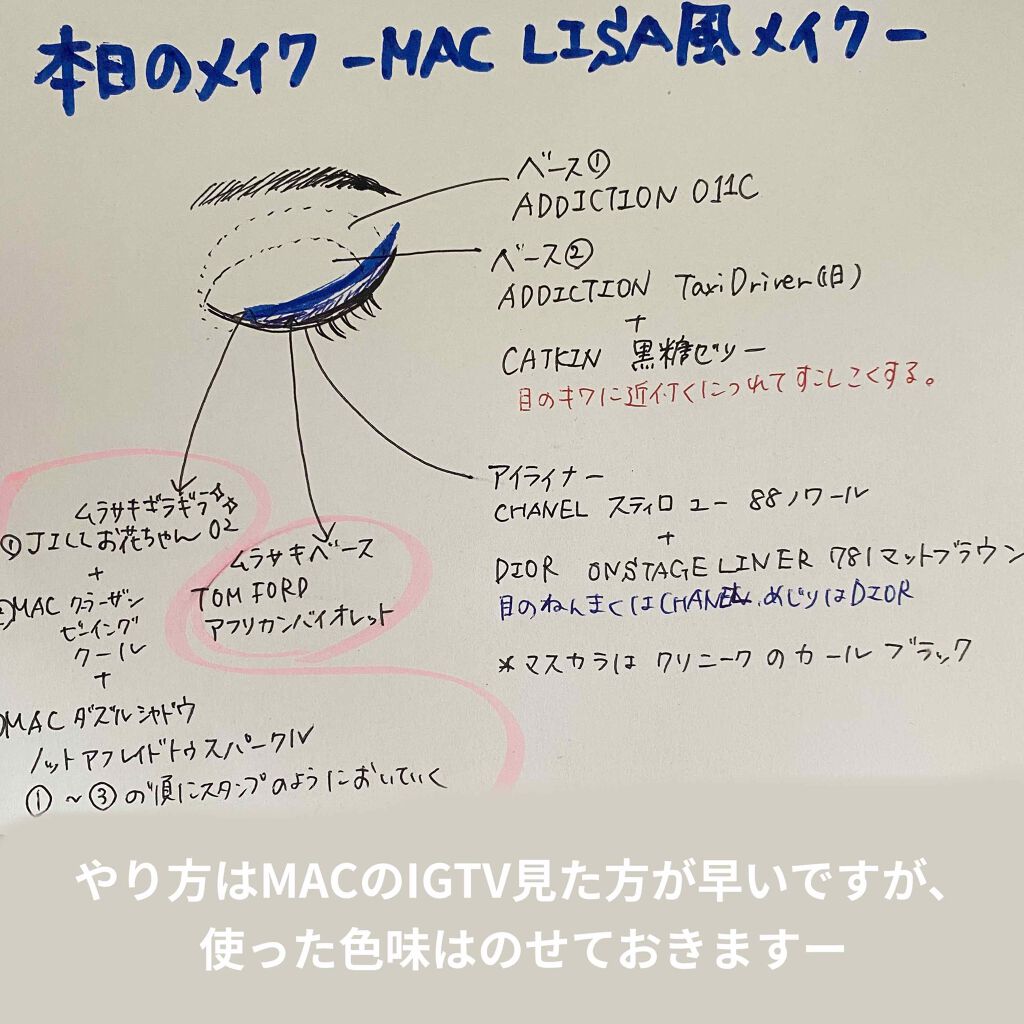 本日のメイク -MAC LISA風メイク-
ベース①
ADDICTION 011C
ベース②
ADDICTION Taxi Driver(旧)
+
CATKIN 黒糖ゼリー
目のキワに近付くにつれてすこしこくする。
アイライナー
CHANEL スティロ ユー 88 ノワール
+
DIOR ONSTAGE LINER 781 マットブラウン
目のねんまくはCHANEL、めじりはDIOR
*マスカラは クリニークのカール ブラック
ムラサキギラギラ☆☆
① JILL お花ちゃん 02
+
②MAC クラーザン
ビーイング
クール
+
③MAC ダズルシャドウ
ノットアフレイドトゥスパークル
①~③の順にスタンプのようにおいていく
ムラサキベース
TOM FORD
アフリカンバイオレット
やり方はMACのIGTV見た方が早いですが、
使った色味はのせておきますー